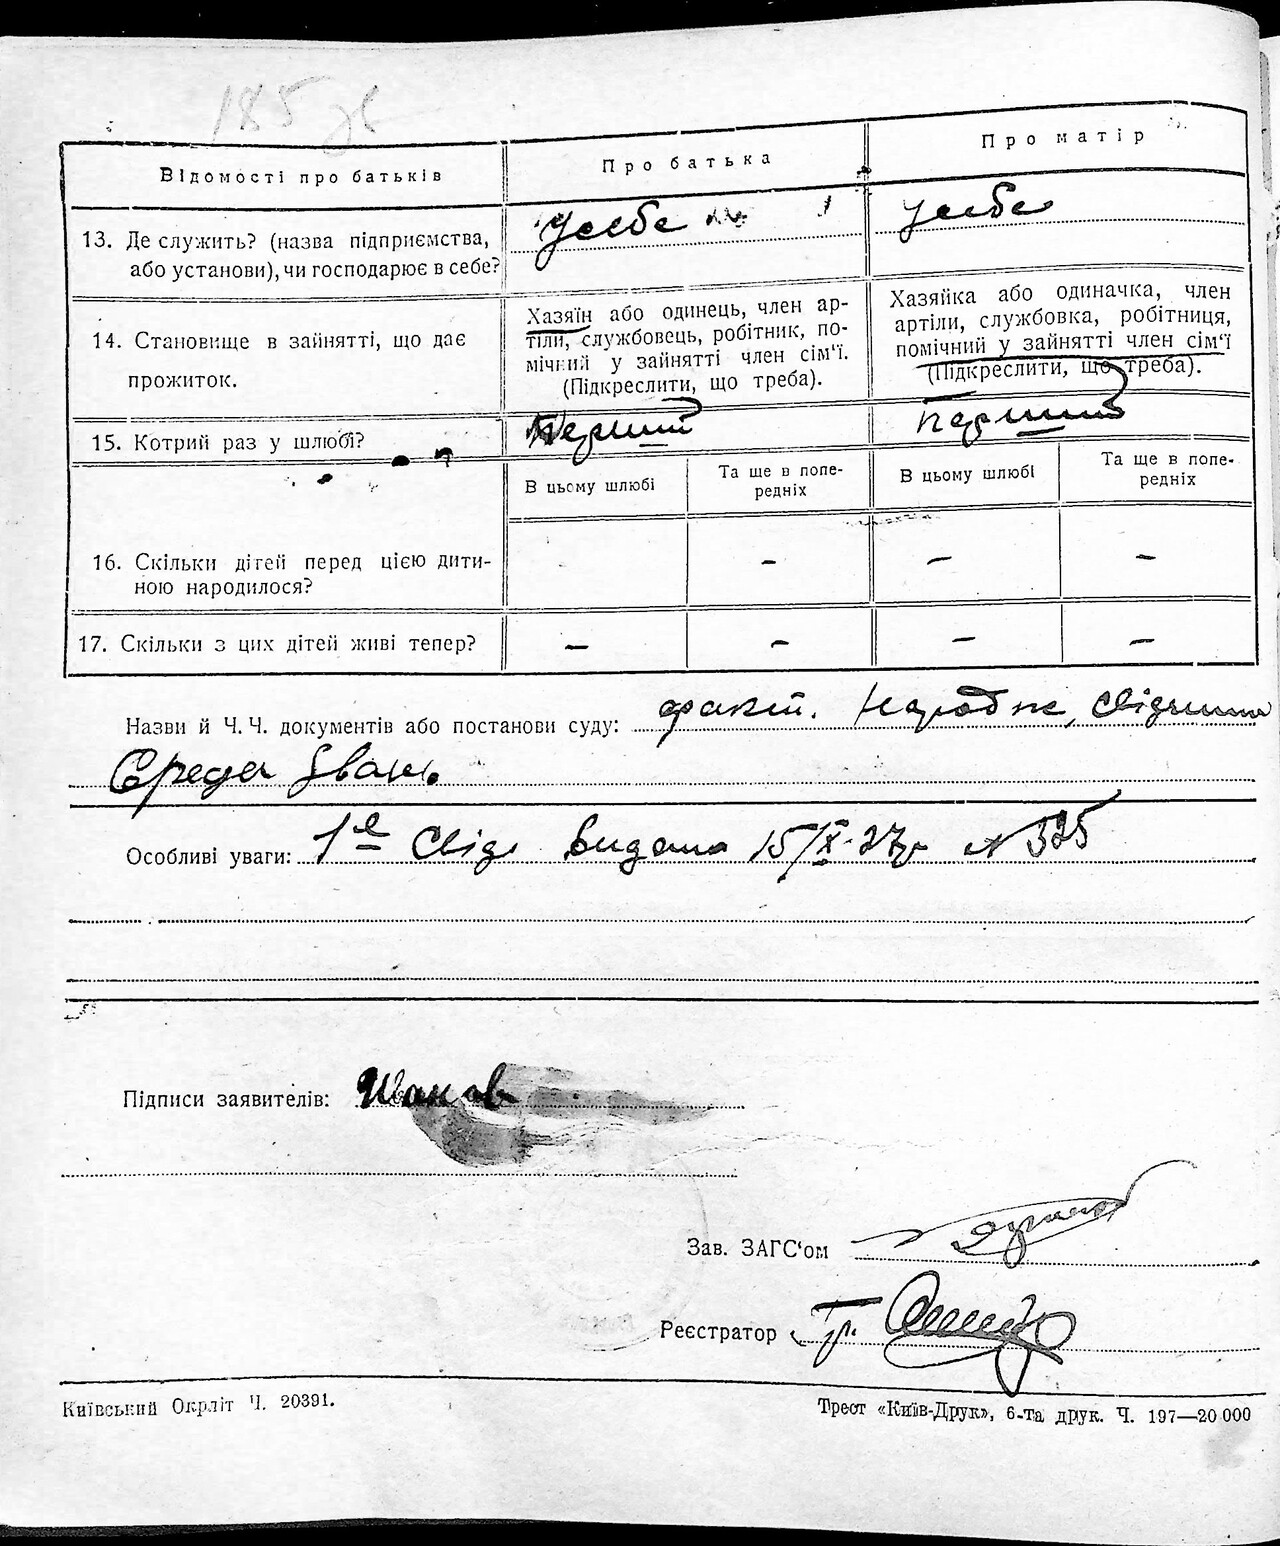 185 зв
Відомості про батьків
Про батька
Про матір
13. Де служить? (назва підприємства,
або установи), чи господарює в себе?
У себе
У себе
14. Становище в зайнятті, що дає
прожиток.
Хазяїн або одинець, член ар-
тіли, службовець, робітник, по-
мічний у зайнятті член сім'ї.
(Підкреслити, що треба).
Хазяйка або одиначка, член
артіли, службовка, робітниця,
помічний у зайнятті член сім'ї
(Підкреслити, що треба).
15. Котрий раз у шлюбі?
Перший
перший
В цьому шлюбі
Та ще в попе-
редніх
В цьому шлюбі
Та ще в попе-
редніх
16. Скільки дітей перед цією дити-
ною народилося?
– – –
17. Скільки з цих дітей живі тепер?
– – – –
Назви й Ч. Ч. документів або постанови суду: факт. народж,
Середа
Особливі уваги: 1е Свід. видана 15/X-27р № 325
Підписи заявителів:
Зав. ЗАГС'ом
Реєстратор Гр.
Київський Окрліт Ч. 20391.
Трест «Київ-Друк», 6-та друк. Ч. 197—20 000